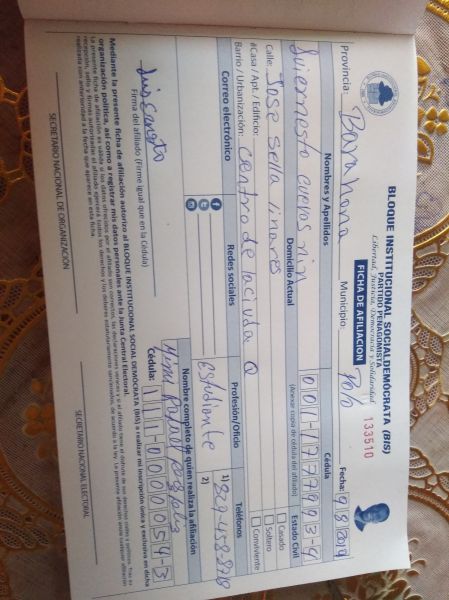 BLOQUE INSTITUCIONAL SOCIALDEMÓCRATA (BIS)
PARTIDO PEÑAGOMISTA
Libertad, Justicia, Democracia y Solidaridad
FICHA DE AFILIACIÓN
133510
Provincia: Barahona Municipio: Polo Fecha: 9/8/2019
Nombres y Apellidos
Cédula
(Anexar copia de cédula del afiliado)
Luis ernesto cuevas nin
001-1777993-4
Domicilio Actual
Estado Civil
Calle: Jose sella linares
Casado
Soltero
Conviviente
#Casa / Apt. / Edificio:
Barrio / Urbanización: centro de la ciuda Q
Correo electrónico
Redes sociales
Profesión/Oficio
Teléfonos
Estudiante
1) 829-458-8718
2)
Firma del afiliado (Firme igual que en la Cédula)
Nombre completo de quien realiza la afiliación
Cédula: 111-0000054-3
Mediante la presente ficha de afiliación autorizo al BLOQUE INSTITUCIONAL SOCIAL DEMÓCRATA (BIS) a realizar mi inscripción única y exclusiva en dicha
organización política, así como a registrar mis datos personales ante la Junta Central Electoral.
SECRETARIO NACIONAL DE ORGANIZACIÓN
SECRETARIO NACIONAL ELECTORAL